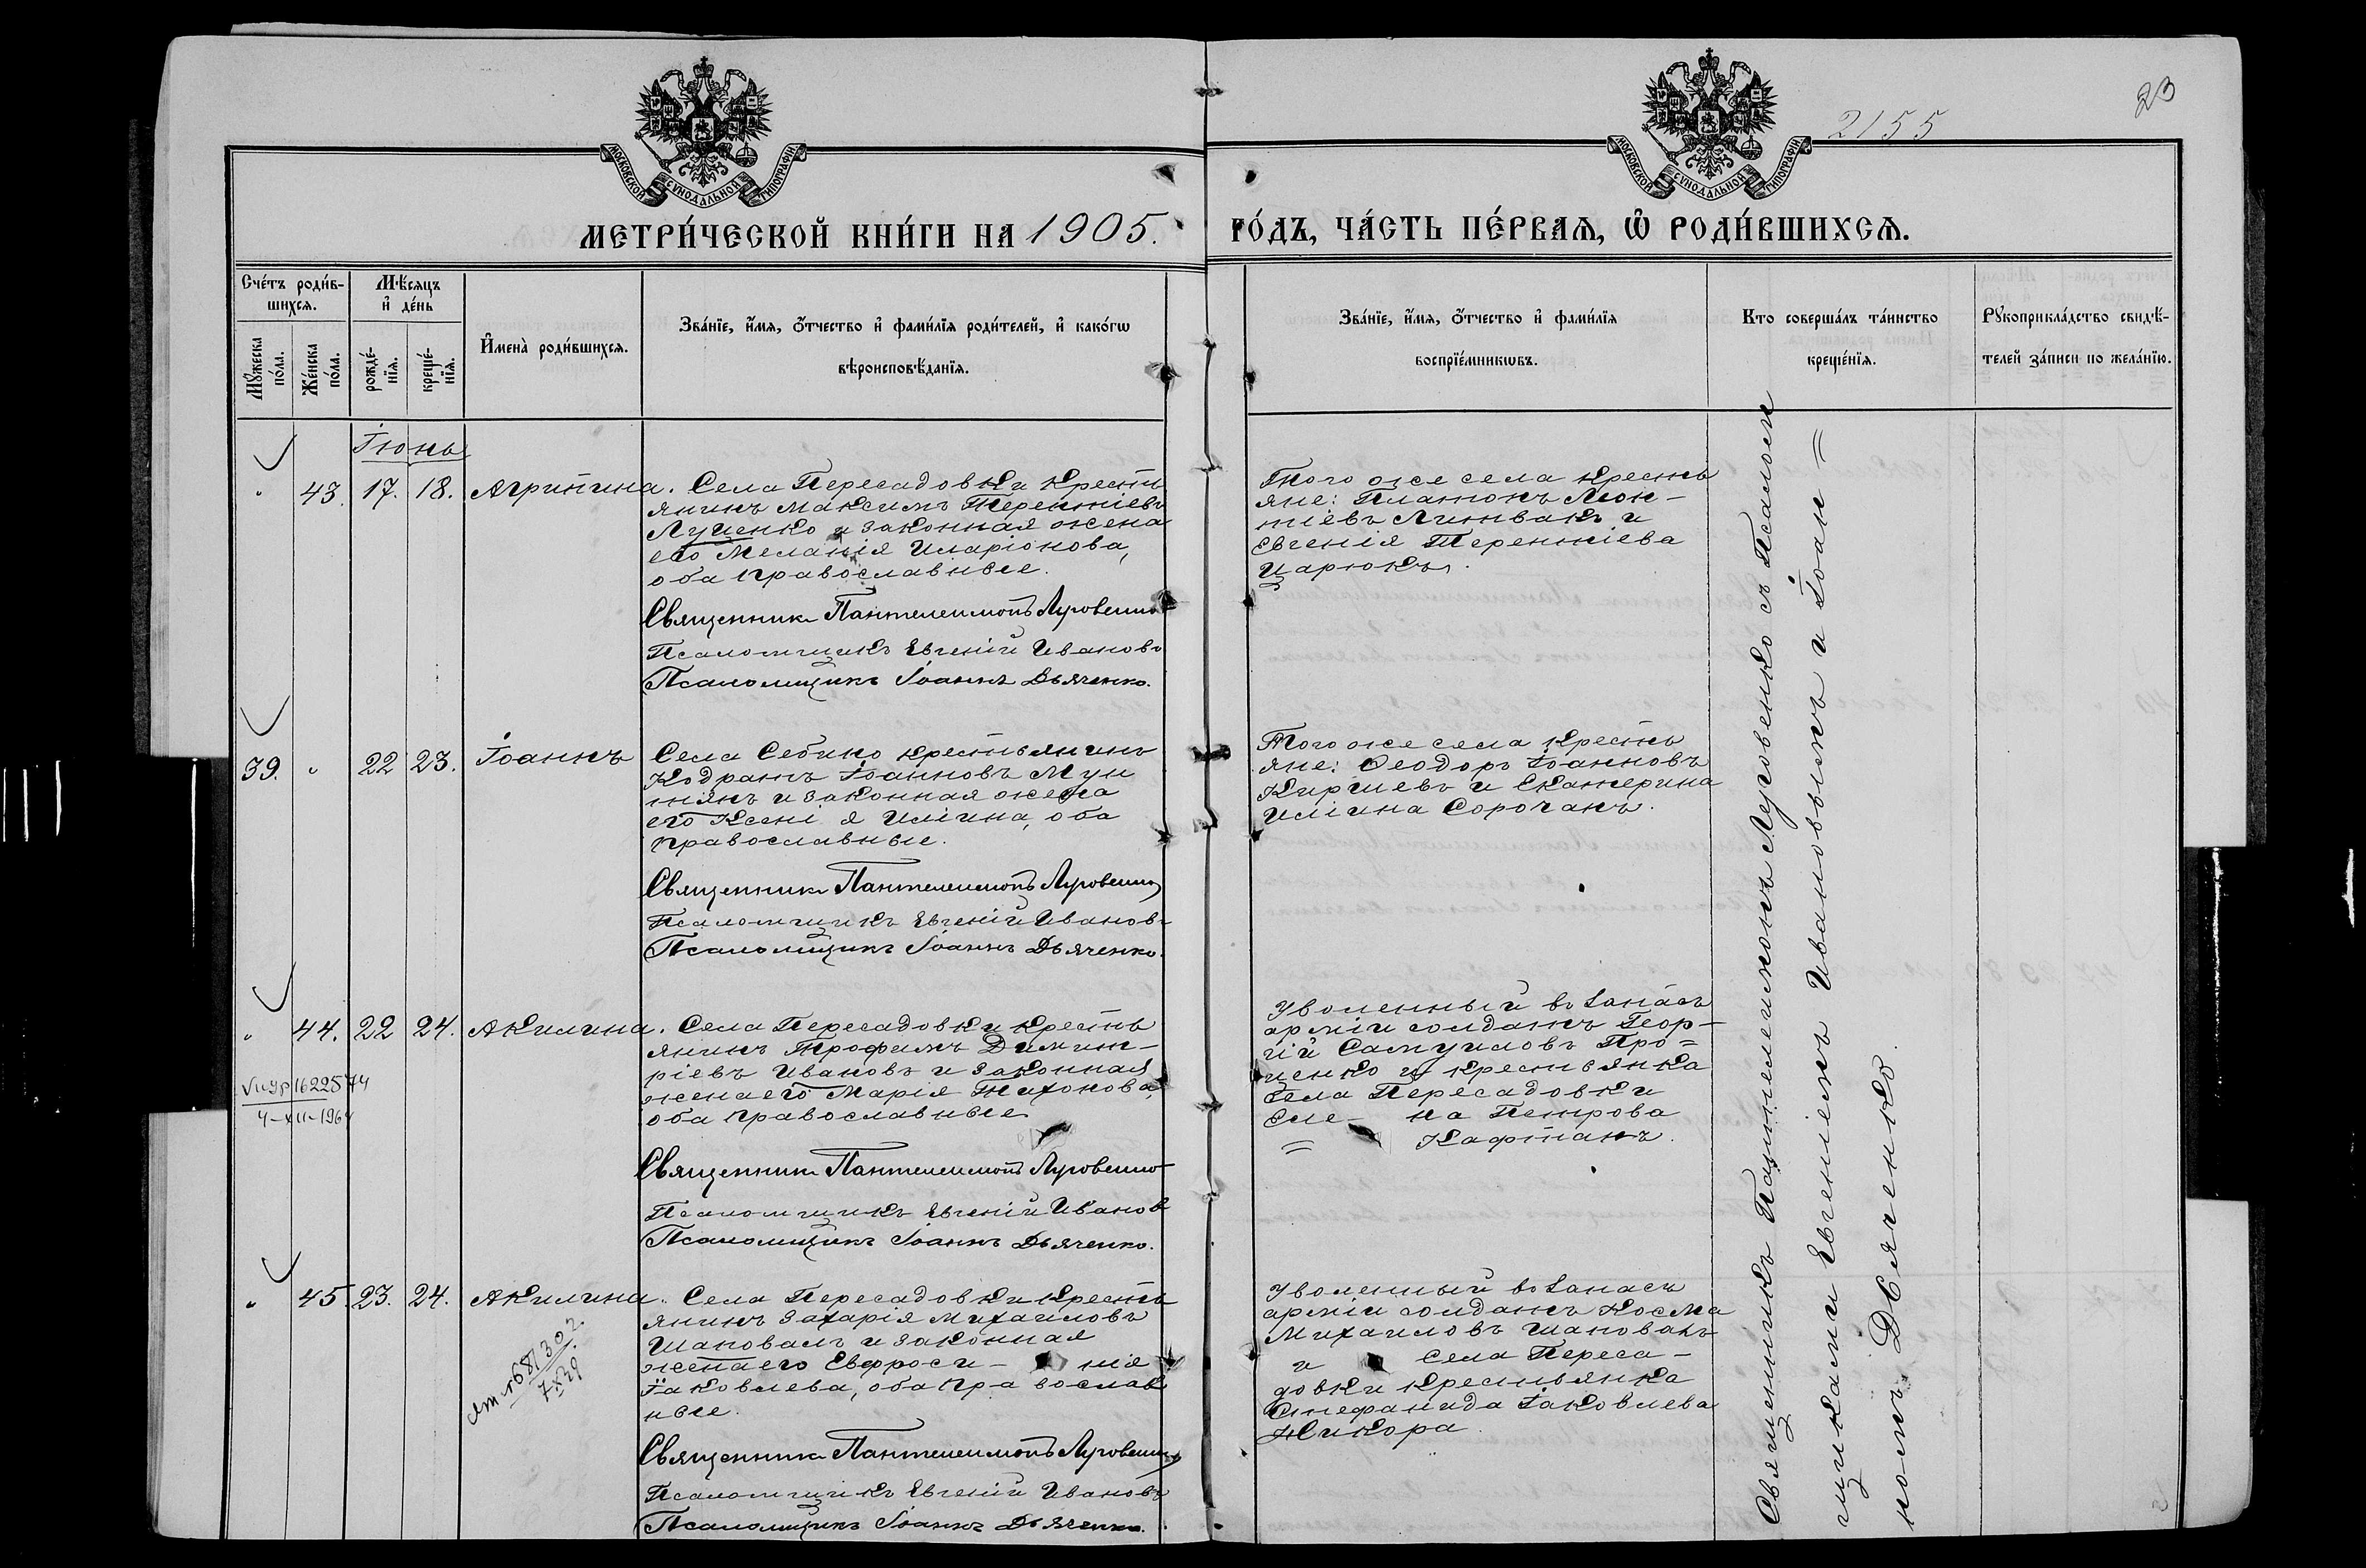 2155
23
МОСКОВСКОЙ СѴНОДАЛЬНОЙ ТИПОГРАФІИ
МОСКОВСКОЙ СѴНОДАЛЬНОЙ ТИПОГРАФІИ
МЕТРИ́ЧЕСКОЙ КНИ́ГИ НА 1905.
ГО́ДЪ, ЧА́СТЬ ПЕ́РВАѦ, Ѽ РОДИ́ВШИХСѦ.
Сче́тъ роди́в-
шихсѧ.
Мꙋ́жеска
по́ла.
Же́нска
по́ла.
Мѣ́сѧцъ
и҆ де́нь
рожде́-
нїѧ.
креще́-
нїѧ.
И҆мена̀ роди́вшихсѧ.
Зва́нїе, и҆́мѧ, ѻ҆́тчество и҆ фами́лїѧ роди́телей, и҆ како́гѡ
вѣроисповѣ́данїѧ.
Зва́нїе, и҆́мѧ, ѻ҆́тчество и҆ фами́лїѧ
воспрїе́мникѡвъ.
Кто соверша́лъ та́инство
креще́нїѧ.
Рꙋкоприкла́дство свидѣ́-
телей за́писи по жела́нїю.
Іюнь
" 43. 17. 18. Агрипина. Села Пересадовки кресть
янинъ Максимъ Терентіевъ
Луценко и законная жена
его Меланія Иларіонова,
оба православные.
Священникъ Пантелеимонъ Луговенко
Псаломщикъ Евгеній Ивановъ
Псаломщикъ Іоаннъ Дьяченко.
Того же села кресть
яне: Платонъ Леон-
тіевъ Литвакъ и
Евгенія Терентіева
Царюкъ.
39. " 22 23. Іоаннъ Села Себино крестьянинъ
Кодратъ Іоанновъ Мун
тянъ и законная жена
его Ксенія Иліина, оба
православные.
Священникъ Пантелеимонъ Луговенко
Псаломщикъ Евгеній Ивановъ
Псаломщикъ Іоаннъ Дьяченко.
Того же села кресть
яне: Ѳеодоръ Іоанновъ
и Екатерина
Иліина Сорочанъ.
" 44. 22 24. Акилина. Села Пересадовки кресть
янинъ Трофимъ Димит-
ріевъ Ивановъ и законная
жена его Марія Тихонова,
оба православные
1622574
4-XII-1964
Священникъ Пантелеимонъ Луговенко
Псаломщикъ Евгеній Ивановъ
Псаломщикъ Іоаннъ Дьяченко.
Уволенный въ запасъ
арміи солдатъ Геор-
гій Самуиловъ Про=
ценко и крестьянка
села Пересадовки
Еле- на Петрова
= Кафтанъ.
" 45. 23. 24. Акилина. Села Пересадовки кресть
янинъ Захарія Михаиловъ
Шаповалъ и законная
жена его Евфроси- нія
Іаковлева, оба православ
ные.
Священникъ Пантелеимонъ Луговенко
Псаломщикъ Евгеній Ивановъ
Псаломщикъ Іоаннъ Дьяченко.
Уволенный въ запасъ
арміи солдатъ Косма
Михаиловъ Шаповалъ
и села Переса-
довки крестьянка
Стефанида Іаковлева
Священникъ Пантелеимонъ Луговенко съ Псалом
щиками Евгеніемъ Ивановымъ и Іоан=
номъ Дьяченко.